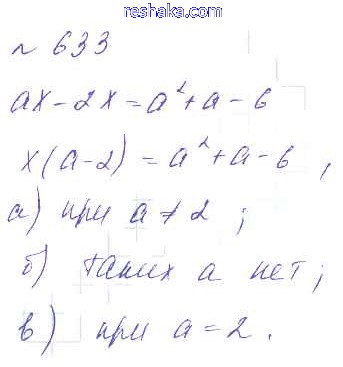 reshaka.com
№ 633
ax - 2x = a² + a - 6
x(a-2) = a² + a - 6,
а) при a ≠ 2;
б) таких а нет;
в) при a = 2.